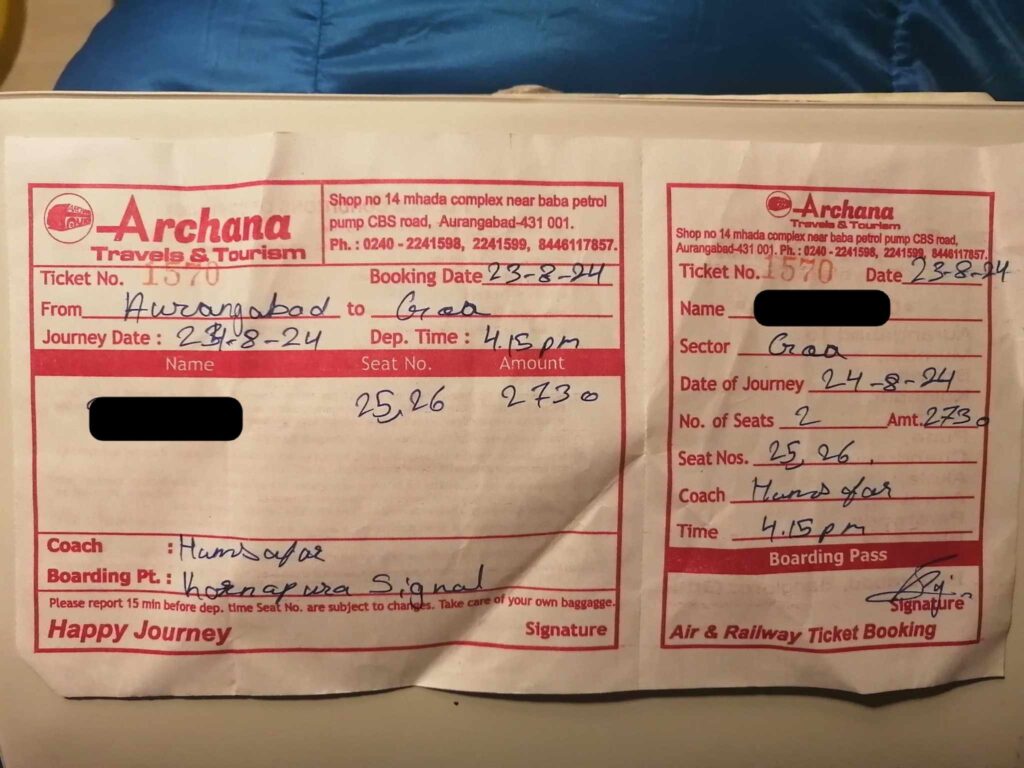 Archana
Travels & Tourism
Shop no 14 mhada complex near baba petrol
pump CBS road, Aurangabad-431 001.
Ph. : 0240 - 2241598, 2241599, 8446117857.
Ticket No. 1570 Booking Date 23-8-24
From Aurangabad to Goa
Journey Date : 24-8-24 Dep. Time : 4.15 pm
Name Seat No. Amount
25, 26 2730
Coach : Humsafar
Boarding Pt. : Signal
Please report 15 min before dep. time Seat No. are subject to changes. Take care of your own baggage.
Happy Journey Signature
Archana
Travels & Tourism
Shop no 14 mhada complex near baba petrol pump CBS road,
Aurangabad-431 001. Ph. : 0240 - 2241598, 2241599, 8446117857.
Ticket No. 1570 Date 23-8-24
Name
Sector Goa
Date of Journey 24-8-24
No. of Seats 2 Amt. 2730
Seat Nos. 25, 26.
Coach Humsafar
Time 4.15 pm
Boarding Pass
Signature
Air & Railway Ticket Booking